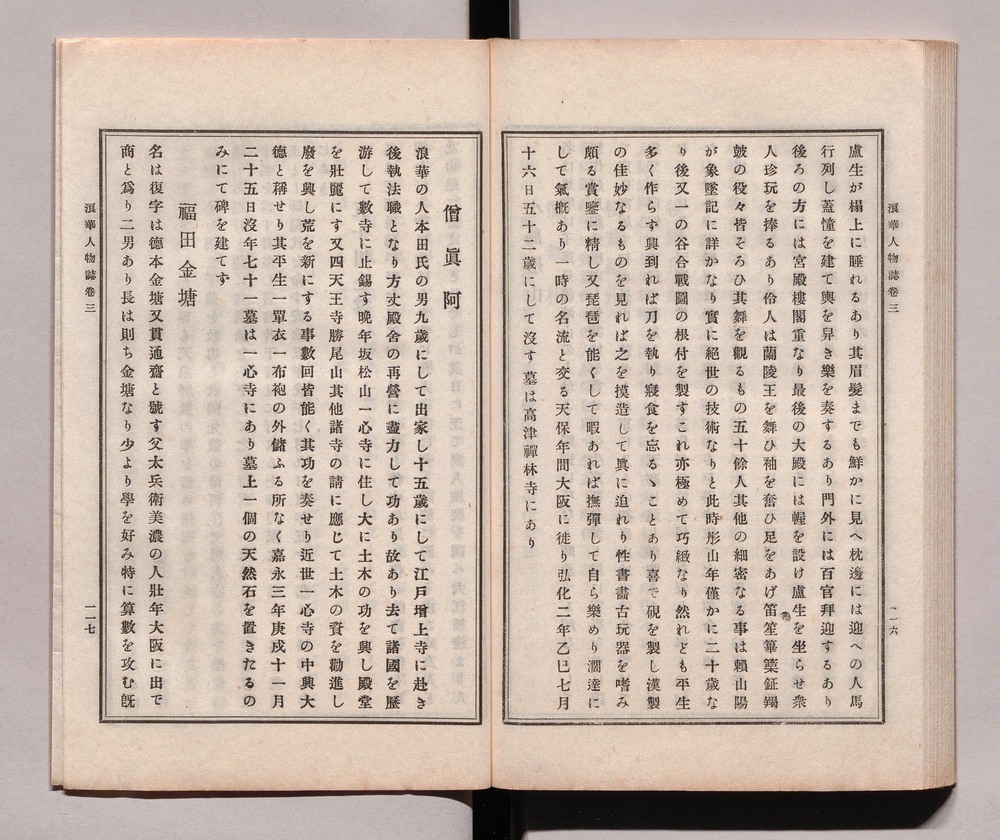 浪華人物誌卷三
一一六
盧生が榻上に睡れるあり其眉髮までも鮮かに見へ枕邊には迎への人馬
行列し蓋幢を建て輿を舁き樂を奏するあり門外には百官拜迎するあり
後ろの方には宮殿樓閣重なり最後の大殿には幄を設け盧生を坐らせ衆
人珍玩を捧るあり俗人は蘭陵王を舞ひ袖を奮ひ足をあげ笛笙篳篥鉦羯
皷の役々皆そろひ其舞を觀るもの五十餘人其他の細密なる事は賴山陽
が象墜記に詳かなり實に絕世の技術なりと此時彤山年僅かに二十歲な
り後又一の谷合戰圖の根付を製すこれ亦極めて巧緻なり然れども平生
多く作らず興到れば刀を執り寢食を忘るゝことあり喜で硯を製し漢製
の佳妙なるものを見れば之を摸造して眞に迫れり性書畵古玩器を嗜み
頗る賞鑒に精し又琵琶を能くして暇あれば撫彈して自ら樂めり濶達に
して氣槪あり一時の名流と交る天保年間大阪に徙り弘化二年乙巳七月
十六日五十二歲にして沒す墓は高津禪林寺にあり
僧眞阿
浪華の人本田氏の男九歲にして出家し十五歲にして江戶增上寺に赴き
後執法職となり方丈殿舍の再營に盡力して功あり故あり去て諸國を歷
游して數寺に止錫す晚年坂松山一心寺に住し大に土木の功を興し殿堂
を壯麗にす又四天王寺勝尾山其他諸寺の請に應じて土木の資を勸進し
廢を興し荒を新にする事數回皆能く其功を奏せり近世一心寺の中興大
德と稱せり其平生一單衣一布袍の外儲ふる所なく嘉永三年庚戌十一月
二十五日沒年七十一墓は一心寺にあり墓上一個の天然石を置きたるの
みにて碑を建てず
福田金塘
名は復字は德本金塘又貫通齋と號す父太兵衛美濃の人壯年大阪に出で
商と爲り二男あり長は則ち金塘なり少より學を好み特に算數を攻む旣
浪華人物誌卷三
一一七